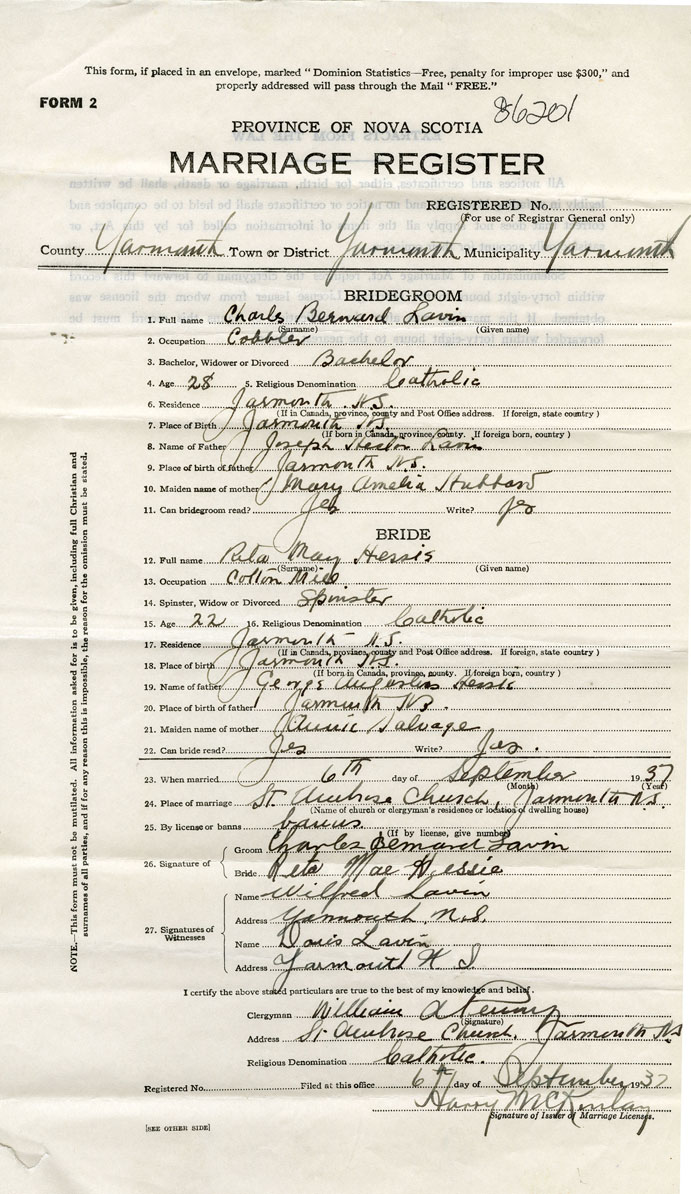 This form, if placed in an envelope, marked "Dominion Statistics—Free, penalty for improper use $300," and
properly addressed will pass through the Mail "FREE."
FORM 2
86201
PROVINCE OF NOVA SCOTIA
MARRIAGE REGISTER
REGISTERED No.
(For use of Registrar General only)
County Yarmouth Town or District Yarmouth Municipality Yarmouth
BRIDEGROOM
1. Full name Charles Bernard Lavin
(Surname) (Given name)
2. Occupation Cobbler
3. Bachelor, Widower or Divorced Bachelor
4. Age 28 5. Religious Denomination Catholic
6. Residence Yarmouth N.S.
(If in Canada, province, county and Post Office address. If foreign, state country)
7. Place of Birth Yarmouth N.S.
(If born in Canada, province, county. If foreign born, country)
8. Name of Father Joseph Hector Lavin
9. Place of birth of father Yarmouth N.S.
10. Maiden name of mother Mary Amelia Hubbard
11. Can bridegroom read? Yes Write? Yes
BRIDE
12. Full name Rita May Hessis
(Surname) (Given name)
13. Occupation Cotton Mill
14. Spinster, Widow or Divorced Spinster
15. Age 22 16. Religious Denomination Catholic
17. Residence Yarmouth N.S.
(If in Canada, province, county and Post Office address. If foreign, state country)
18. Place of birth Yarmouth N.S.
(If born in Canada, province, county. If foreign born, country)
19. Name of father George Augustus Hessie
20. Place of birth of father Yarmouth N.S.
21. Maiden name of mother Annie Salvage
22. Can bride read? Yes Write? Yes.
23. When married 6th day of September 1937
(Month) (Year)
24. Place of marriage St. Ambrose Church, Yarmouth N.S.
(Name of church or clergyman's residence or location of dwelling house)
25. By license or banns banns
(If by license, give number)
26. Signature of
Groom Charles Bernard Lavin
Bride Rita Mae Hessie
27. Signatures of Witnesses
Name Wilfred Lavin
Address Yarmouth N.S.
Name Doris Lavin
Address Yarmouth N S
I certify the above stated particulars are true to the best of my knowledge and belief.
Clergyman William A Penny
(Signature)
Address St. Ambrose Church, Yarmouth N.S.
Religious Denomination Catholic.
Registered No. Filed at this office 6th day of September 1937
Harry McKinlay
Signature of Issuer of Marriage Licenses.
[SEE OTHER SIDE]
NOTE.—This form must not be mutilated. All information asked for is to be given, including full Christian and
surnames of all parties, and if for any reason this is impossible, the reason for the omission must be stated.